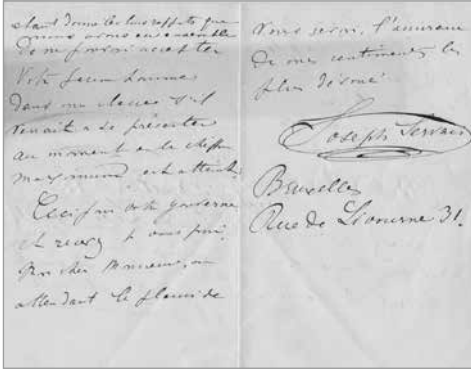 étant donné les bons rapports que
nous avons eus ensemble
de me pouvoir accepter
Votre jeune homme
dans ma classe s'il
venait à se présenter
au moment où le chiffre
maximum est atteint.
Ceci pour votre gouverne
et recevez je vous prie,
Mon cher Monsieur, en
attendant le plaisir de
Vous revoir, l'assurance
de mes sentiments les
plus dévoués
Joseph Servais
Bruxelles
Rue de Livourne 31.